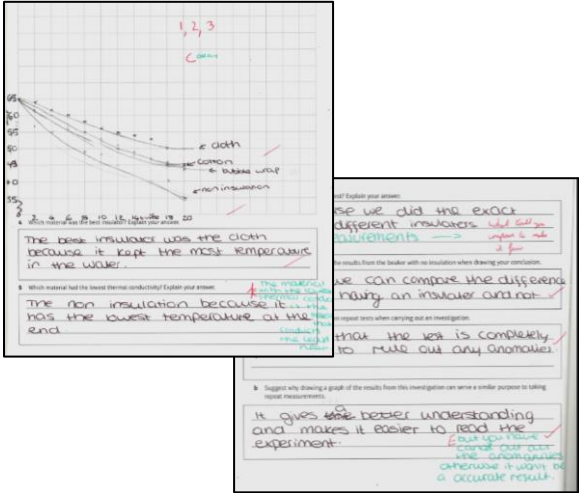 1, 2, 3
65
60
55
50
45
40
35
← cloth
← cotton
← bubble wrap
← non insulation
2 4 6 8 10 12 14 16 18 20
a Which material was the best insulator? Explain your answer.
The best insulator was the cloth
because it kept the most temperature
in the water.
b Which material had the lowest thermal conductivity? Explain your answer.
The non insulation because it
has the lowest temperature at the
end
The material
with the lowest
thermal
is the
that
conducts
the least
heat
Explain your answer.
se we did the exact
different insulators
asurements →
what could you
explain to make
it fair
the results from the beaker with no insulation when drawing your conclusion.
we can compare the difference
having an insulator and not.
n repeat tests when carrying out an investigation.
that the test is completely
to rule out any anomalies.
b Suggest why drawing a graph of the results from this investigation can serve a similar purpose to taking
repeat measurements.
It gives a better understanding
and makes it easier to read the
experiment.
but you have
cancel out all
the anomalies
otherwise it won't be
a accurate result.